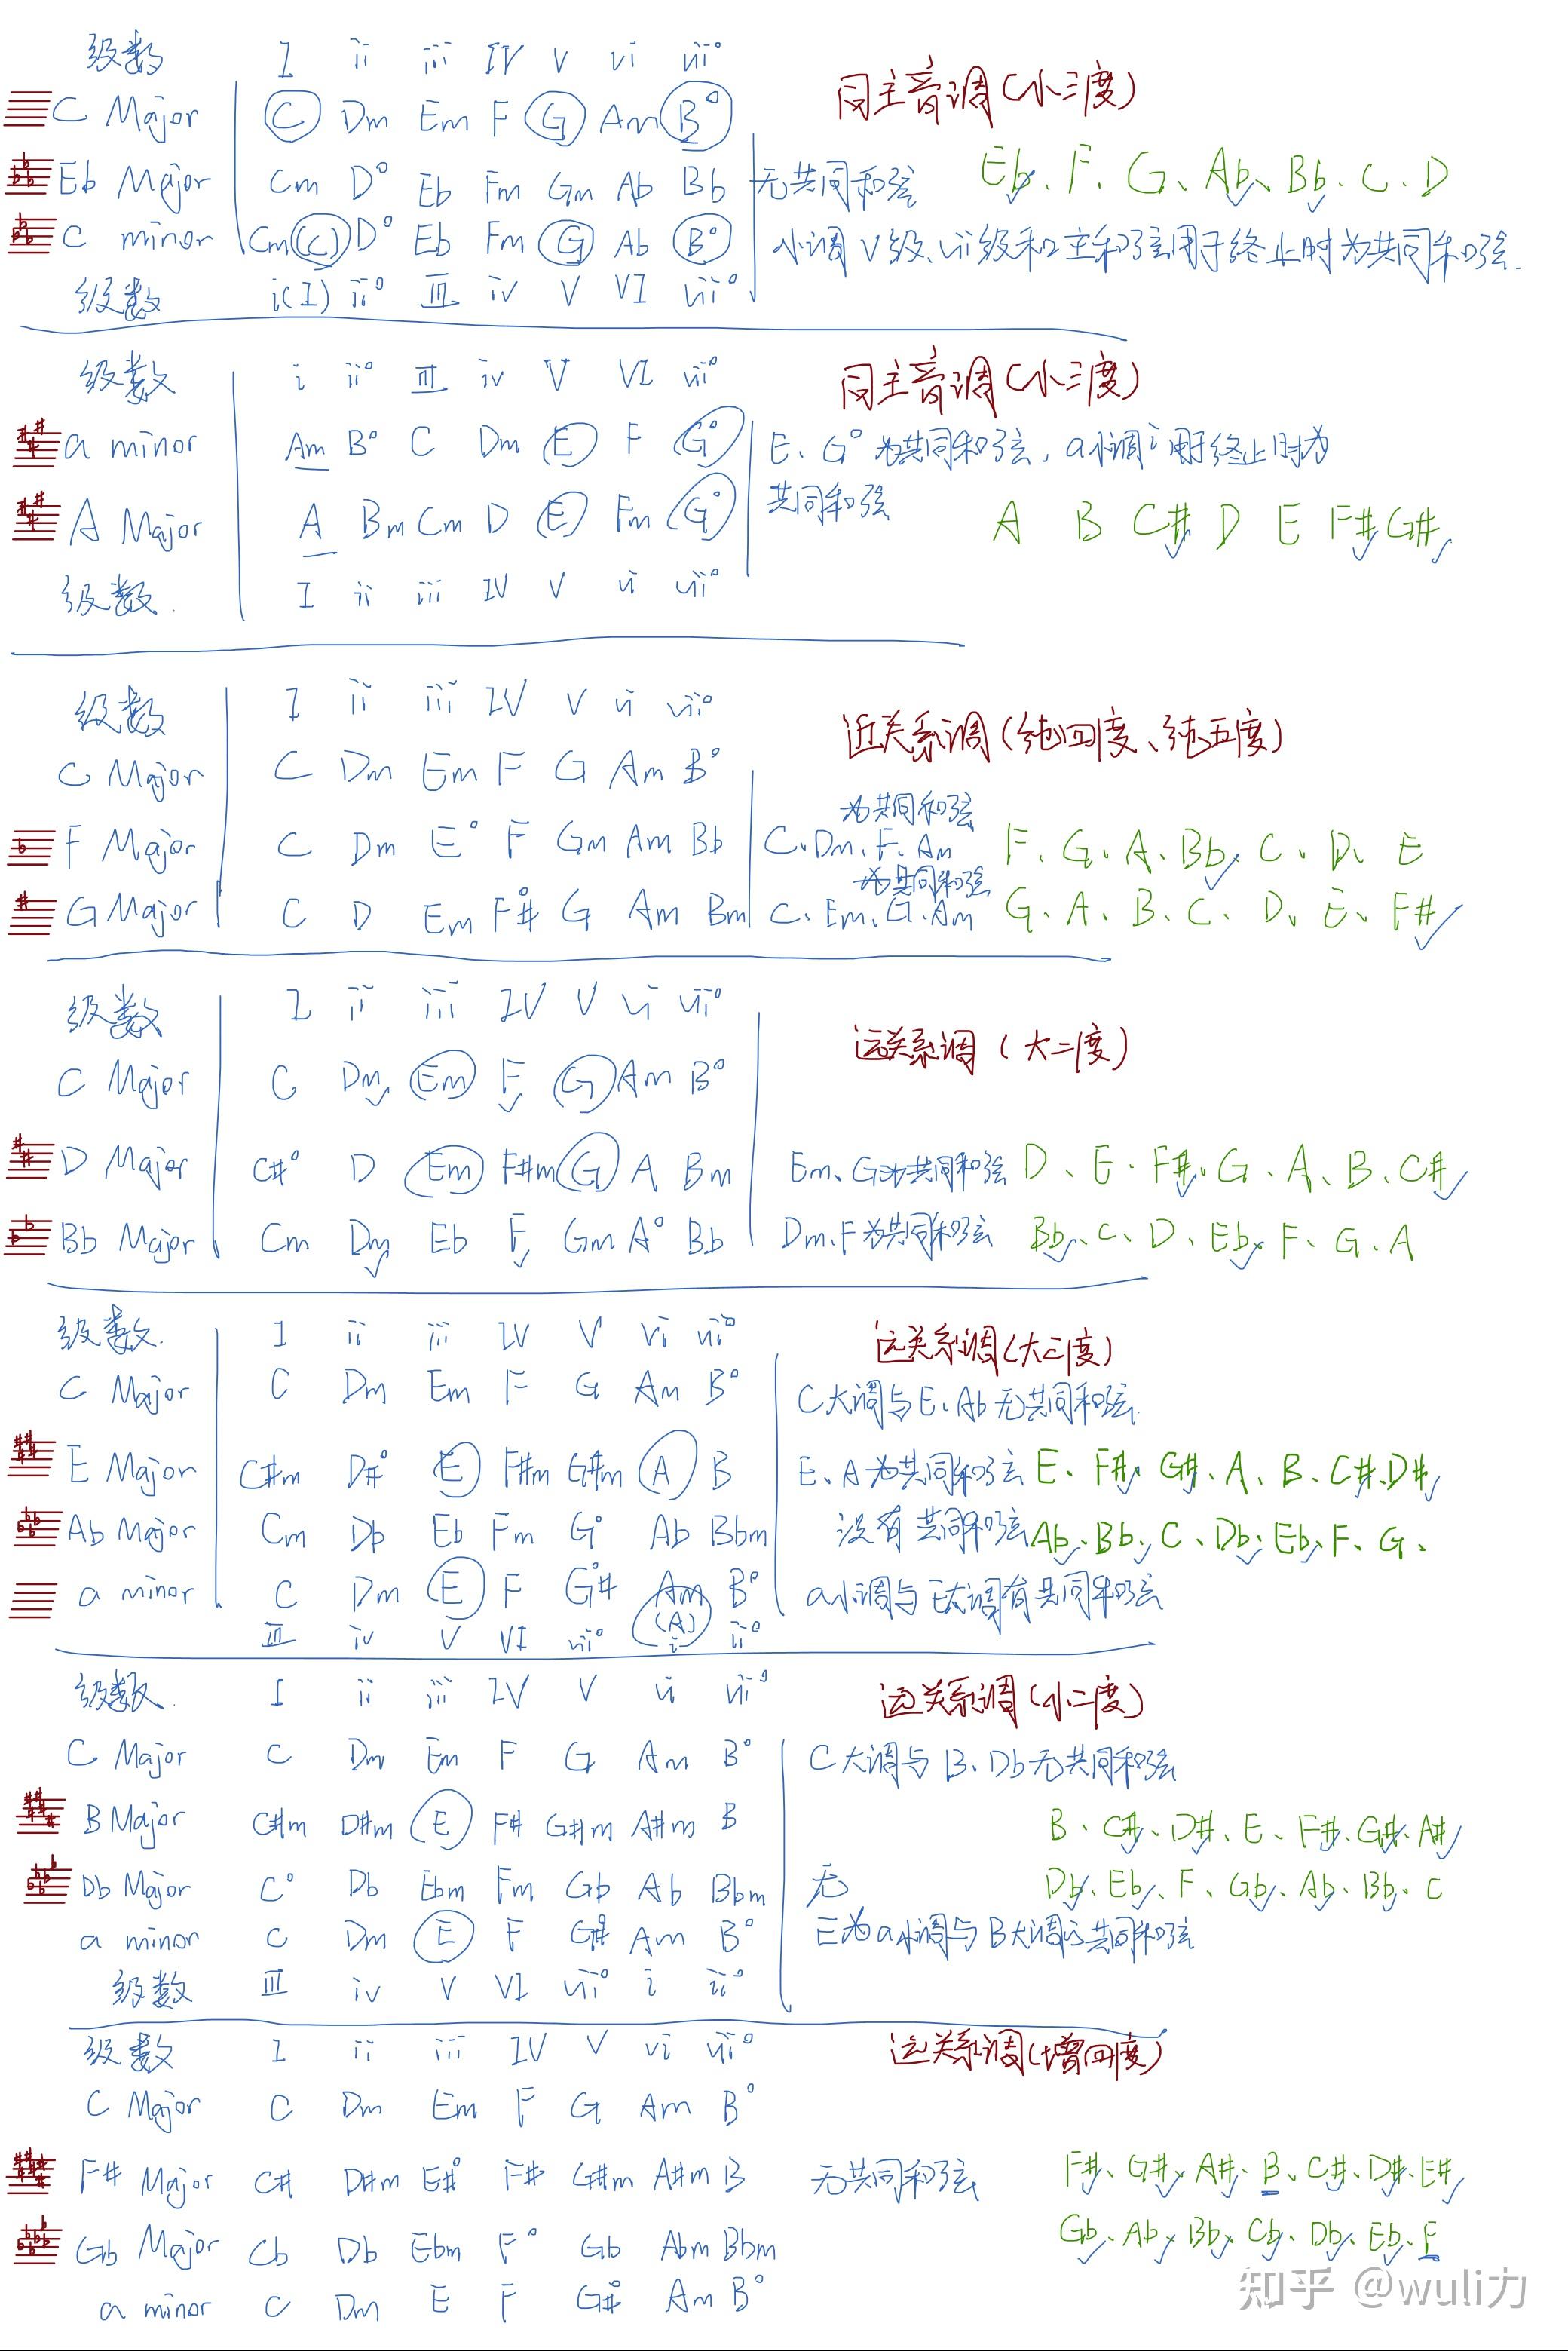 级数 I ii iii IV V vi vii°
C Major C Dm Em F G Am B° 同主音调(小三度)
Eb Major Cm D° Eb Fm Gm Ab Bb 无共同和弦 Eb、F、G、Ab、Bb、C、D
C minor Cm(C) D° Eb Fm G Ab B° 小调V级、vii级和主和弦用于终止时为共同和弦.
级数 i(I) ii° III iv V VI vii°
级数 i ii° III iv V VI vii° 同主音调(小三度)
a minor Am B° C Dm E F G° E、G°为共同和弦, a小调i用于终止时为
共同和弦
A Major A Bm Cm D E Fm G° A B C# D E F# G#
级数. I ii iii IV V vi vii°
级数 I ii iii IV V vi vii° 近关系调(纯四度、纯五度)
C Major C Dm Em F G Am B°
为共同和弦
F Major C Dm E° F Gm Am Bb C、Dm、F、Am F、G、A、Bb、C、D、E
为共同和弦
G Major C D Em F#° G Am Bm C、Em、G、Am G、A、B、C、D、E、F#
级数 I ii iii IV V vi vii° 远关系调(大二度)
C Major C Dm Em F G Am B°
D Major C#° D Em F#m G A Bm Em、G为共同和弦 D、E、F#、G、A、B、C#
Bb Major Cm Dm Eb F Gm A° Bb Dm、F为共同和弦 Bb、C、D、Eb、F、G、A
级数. I ii iii IV V vi vii° 远关系调(大三度)
C Major C Dm Em F G Am B° C大调与E、Ab无共同和弦.
E Major C#m D#° E F#m G#m A B E、A为共同和弦 E、F#、G#、A、B、C#、D#
Ab Major Cm Db Eb Fm G° Ab Bbm 没有共同和弦 Ab、Bb、C、Db、Eb、F、G、
a minor C Dm E F G#° Am (A) B° a小调与E大调有共同和弦
III iv V VI vii° i ii°
级数. I ii iii IV V vi vii° 远关系调(小二度)
C Major C Dm Em F G Am B° C大调与B、Db无共同和弦
B Major C#m D#m E F# G#m A#m B B、C#、D#、E、F#、G#、A#
Db Major C° Db Ebm Fm Gb Ab Bbm 无 Db、Eb、F、Gb、Ab、Bb、C
a minor C Dm E F G#° Am B° E为a小调与B大调的共同和弦
级数 III iv V VI vii° i ii°
级数 I ii iii IV V vi vii° 远关系调(增四度)
C Major C Dm Em F G Am B°
F# Major C# D#m E#° F# G#m A#m B 无共同和弦 F#、G#、A#、B、C#、D#、E#
Gb Major Cb Db Ebm F° Gb Abm Bbm Gb、Ab、Bb、Cb、Db、Eb、F
a minor C Dm E F G#° Am B°
知乎 @wuli力